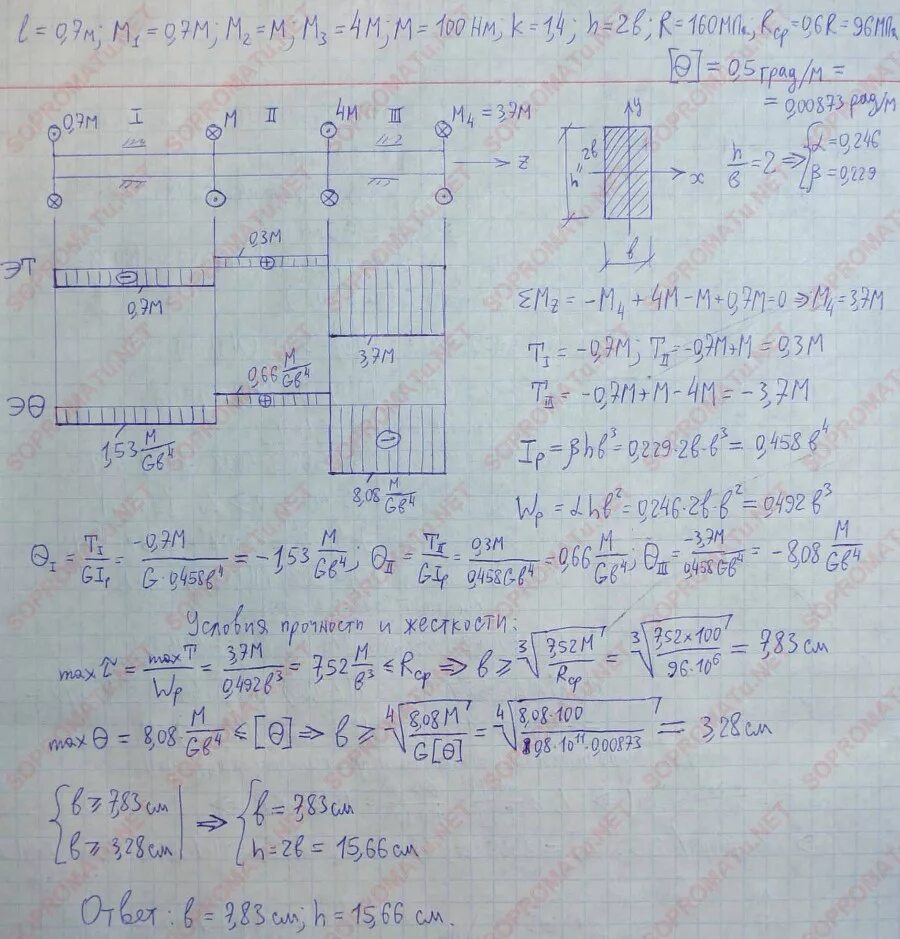 l = 0,7м; M₁ = 0,7M; M₂ = M; M₃ = 4M; M = 100 Нм; k = 1,4; h = 2в; R = 160 МПа; Rср = 0,6R = 96 МПа
[Θ] = 0,5 град/м =
= 0,00873 рад/м
0,7M I M II 4M III M₄ = 3,7M
z
y
2в
h
x
в
h/в = 2 ⇒ { α = 0,246
β = 0,229
ЭТ
0,7M
0,3M
3,7M
ΣM_z = -M₄ + 4M - M + 0,7M = 0 ⇒ M₄ = 3,7M
T_I = -0,7M; T_II = -0,7M + M = 0,3M
T_III = -0,7M + M - 4M = -3,7M
ЭΘ
1,53 M/Gв⁴
0,66 M/Gв⁴
8,08 M/Gв⁴
I_p = βhв³ = 0,229·2в·в³ = 0,458в⁴
W_p = αhв² = 0,246·2в·в² = 0,492в³
Θ_I = T_I/GI_p = -0,7M/G·0,458в⁴ = -1,53 M/Gв⁴; Θ_II = T_II/GI_p = 0,3M/0,458Gв⁴ = 0,66 M/Gв⁴; Θ_III = -3,7M/0,458Gв⁴ = -8,08 M/Gв⁴
Условия прочности и жесткости:
max τ = max T/W_p = 3,7M/0,492в³ = 7,52 M/в³ ≤ Rср ⇒ в ≥ ∛(7,52M/Rср) = ∛(7,52×100/96·10⁶) = 7,83 см
max Θ = 8,08·M/Gв⁴ ≤ [Θ] ⇒ в ≥ ∜(8,08M/G[Θ]) = ∜(8,08·100/0,8·10¹¹·0,00873) = 3,28 см
{ в ≥ 7,83 см ⇒ { в = 7,83 см
в ≥ 3,28 см h = 2в = 15,66 см
Ответ: в = 7,83 см; h = 15,66 см.
SOPROMATU.NET